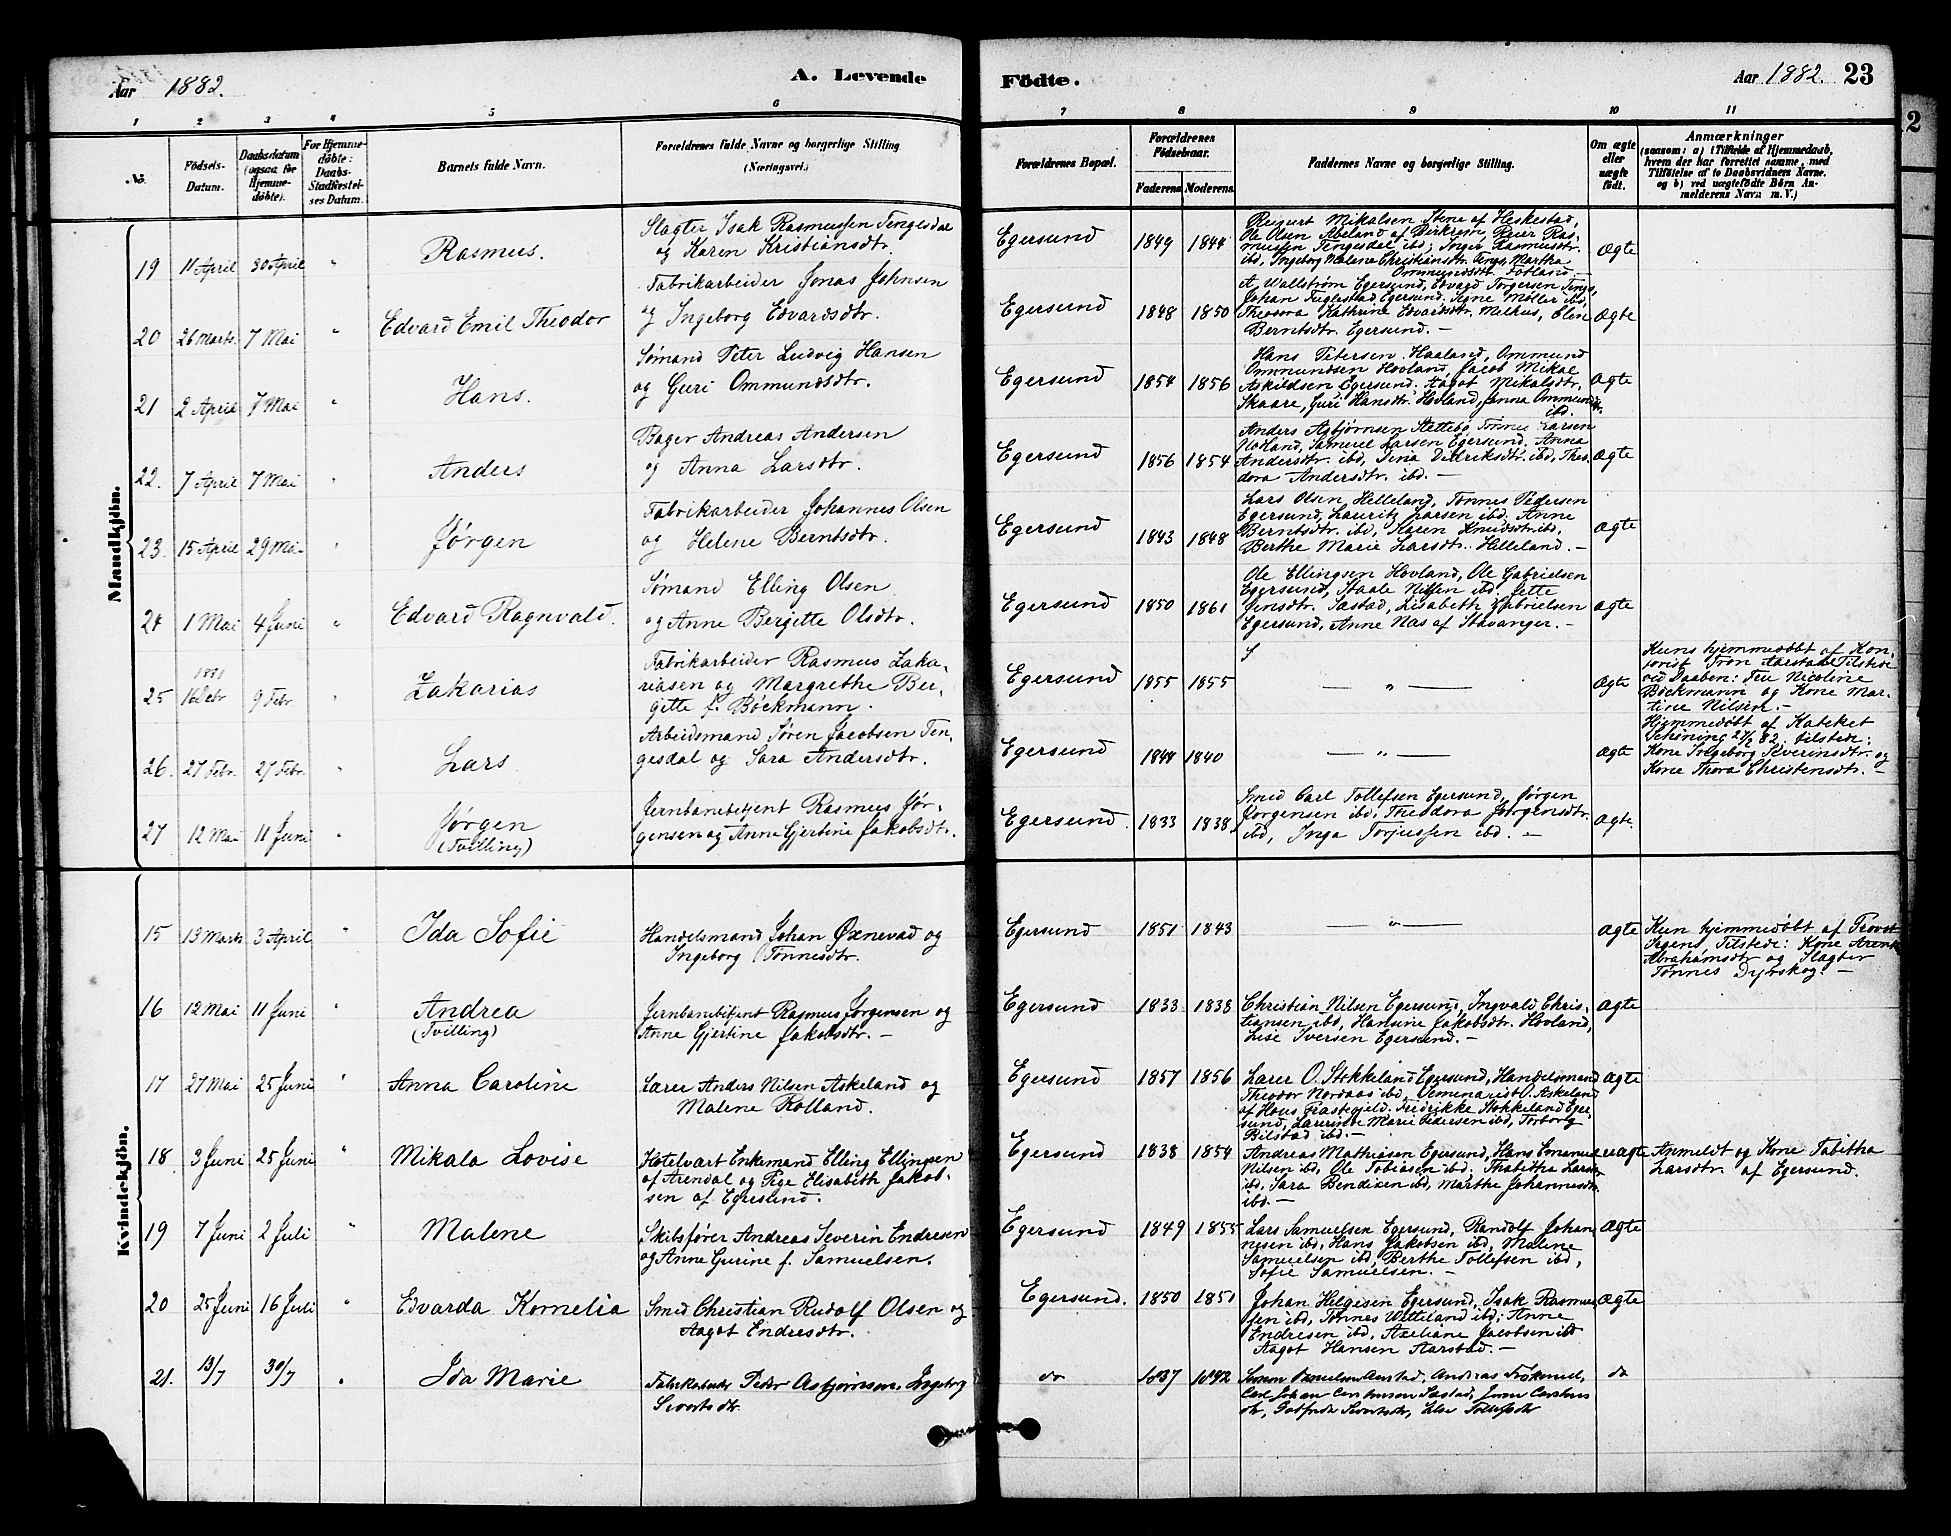 Aar 1882. A. Levende
Födte. Aar 1882. 23
1 2 3 4 5 6
7 8 9 10 11
No. Födsels-Datum. Daabsdatum (ogsaa for Hjemmedöbte). For Hjemmedöbte: Daabs-Stadfæstelses Datum. Barnets fulde Navn. Forældrenes fulde Navne og borgerlige Stilling (Næringsvei.)
Forældrenes Bopæl. Forældrenes Födselsaar. Faderens Moderens. Faddernes Navne og borgerlige Stilling. Om ægte eller uægte födt. Anmærkninger
(saasom: a) i Tilfælde af Hjemmedaab,
hvem der har forrettet samme, med
Tilföielse af to Daabsvidners Navne.
og b) ved uægtefödte Börn An-
melderens Navn m. V.)
Mandkjön.
19 11 April 30 April " Rasmus.
Slagter Isak Rasmussen Tengesdal
og Karen Kristiansdtr.
Egersund 1849 1844
Reinert Mikalsen Stene af Heskestad,
Ole Olsen Abeland af Birkrem, Reier Ras-
mussen Tengesdal ibd; Inger Rasmusdtr.
ibd, Ingeborg Malene Christiansdtr. Tengs, Martha
Ommundsdtr. Fotland. —
Ægte
20 26 Marts. 7 Mai " Edvard Emil Theodor
Fabrikarbeider Jonas Johnsen
og Ingeborg Edvardsdtr.
Egersund 1848 1850
A. Wallstrøm Egersund, Edvard Torgersen Tengs,
Johan Fuglestad Egersund. Agne Møller ibd,
Theodora Kathrine Edvardsdtr. Melhus, Eline
Berntsdtr. Egersund. —
Ægte
21 2 April 7 Mai " Hans.
Sømand Peter Ludvig Hansen
og Guri Ommundsdtr.
Egersund 1854 1856
Hans Petersen Haaland, Ommund
Ommundsen Hovland, Jacob Mikal
Askildsen Egersund. Aagot Mikalsdtr.
Skaare, Guri Hansdtr. Hovland, Janna Ommundsdtr.
ibd.
Ægte
22. 7 April 7 Mai " Anders
Bager Andreas Andersen
og Anna Larsdtr.
Egersund 1856 1854
Anders Asbjørnsen Slettebø, Tønnes Larsen
Nodland, Samuel Larsen Egersund, Anna
Andersdtr. ibd, Tina Didriksdtr. ibd, Theo-
dora Andersdtr. ibd. —
Ægte
23. 15 April 29 Mai " Jørgen
Fabrikarbeider Johannes Olsen
og Helene Berntsdtr.
Egersund 1843 1848
Lars Olsen Helleland, Tønnes Pedersen
Egersund, Lauritz Larsen ibd. Anne
Berntsdtr. ibd, Karen Knudsdtr. ibd,
Berthe Marie Larsdtr. Helleland. —
Ægte
24 1 Mai 4 Juni " Edvard Ragnvald.
Sømand Elling Olsen
og Anne Bergitte Olsdtr.
Egersund 1850 1861
Ole Ellingsen Hovland, Ole Gabrielsen
Egersund, Staale Nilsen ibd. Jette
Jensdtr. Sæstad, Lisabeth Gabrielsen
Egersund, Anne Næs af Stavanger. —
Ægte
25 1881 16 Debr 9 Febr. " Zakarias
Fabrikarbeider Rasmus Zaka-
riasen og Margrethe Ber-
gitte f. Bøckmann.
Egersund 1855 1855 — " — Ægte
Kuns hjemmedöbt af Kon-
torist Tron Aarstad. Tilstede
ved Daaben: Fru Nicoline
Bøckmann og Kone Mar-
tine Nilsen. —
26. 27 Febr. 27 Febr. " Lars
Arbeidsmand Søren Jacobsen Ten-
gesdal og Sara Andersdtr.
Egersund 1844 1840 — " — Ægte
Hjemmedöbt af Kateket
Schöning 27/2 82. tilstede:
Kone Ingeborg Severinsdtr. og
Kone Thora Christensdtr. —
27 12 Mai 11 Juni " Jørgen
(Tvilling)
Jernbanebetjent Rasmus Jør-
gensen og Anne Gjertine Jakobsdtr.
Egersund. 1833 1838
Smed Carl Tollefsen Egersund, Jørgen
Jørgensen ibd, Theodora Jørgensdtr.
ibd, Inga Torjussen ibd. —
Ægte.
Kvindekjön.
15 13 Marts 3 April " Ida Sofie
Handelsmand Johan Øxnevad og
Ingeborg Tønnesdtr.
Egersund 1851 1843 — " — Ægte
Kun hjemmedöbt af Provst
Tilstede: Kone
Abrahamsdtr og Slagter
Tönnes Dyrskog —
16 12 Mai 11 Juni " Andrea
(Tvilling)
Jernbanebetjent Rasmus Jørgensen og
Anne Gjertine Jakobsdtr. —
Egersund 1833 1838
Christian Nilsen Egersund, Ingvald Chris-
tiansen ibd, Hansine Jakobsdtr. Hovland,
Lise Iversen Egersund. —
Ægte
17 27 Mai 25 Juni " Anna Caroline
Lærer Anders Nilsen Askeland og
Malene Rolland.
Egersund 1857 1856
Lærer O. Stokkeland Egersund, Handelsmand
Theodor Nordaas ibd, Semenarist O. Askeland
af Hous Præstegjeld. Fredrikke Stokkeland Eger-
sund, Laurine Marie Pedersen ibd, Torborg
Bilstad ibd. —
Ægte
18 3 Juni 25 Juni " Mikala Lovise
Hotelvært Enkemand Elling Ellingsen
af Arendal og Pige Elisabeth Jakob-
sen af Egersund.
Egersund 1838 1854
Andreas Mathiasen Egersund, Hans
Nilsen ibd, Ole Tobiasen ibd. Thabitha Larsdtr
ibd, Sara Bendixen ibd, Marthe Johannesdtr.
ibd. —
uægte
Anmeldt og Kone Tabitha
Larsdtr. af Egersund.
19 7 Juni 2 Juli " Malene
Skibsfører Andreas Severin Endresen
og Anne Gurine f. Samuelsen.
Egersund 1849 1855
Lars Samuelsen Egersund, Randolf Johan-
nesen ibd, Hans Jakobsen ibd, Malene
Samuelsen ibd, Berthe Tollefsen ibd,
Sofie Samuelsen. —
Ægte
20 25 Juni 16 Juli " Edvarda Kornelia
Smed Christian Rudolf Olsen og
Aagot Endresdtr.
Egersund. 1850 1851
Johan Helgesen Egersund, Isak Rasmus-
sen ibd, Tønnes Witteland ibd; Anne
Endresen ibd, Axeliane Jacobsen ibd
Aagot Hansen Aarstad. —
Ægte
21. 13/7 30/7 " Ida Marie
Fabrikarbeider Peder Asbjørnsen, Ingeborg
Sivertsdtr.
do
Aarstad, Andreas
Carl Johan
Sivertsdtr, Else Tollefsdtr
do